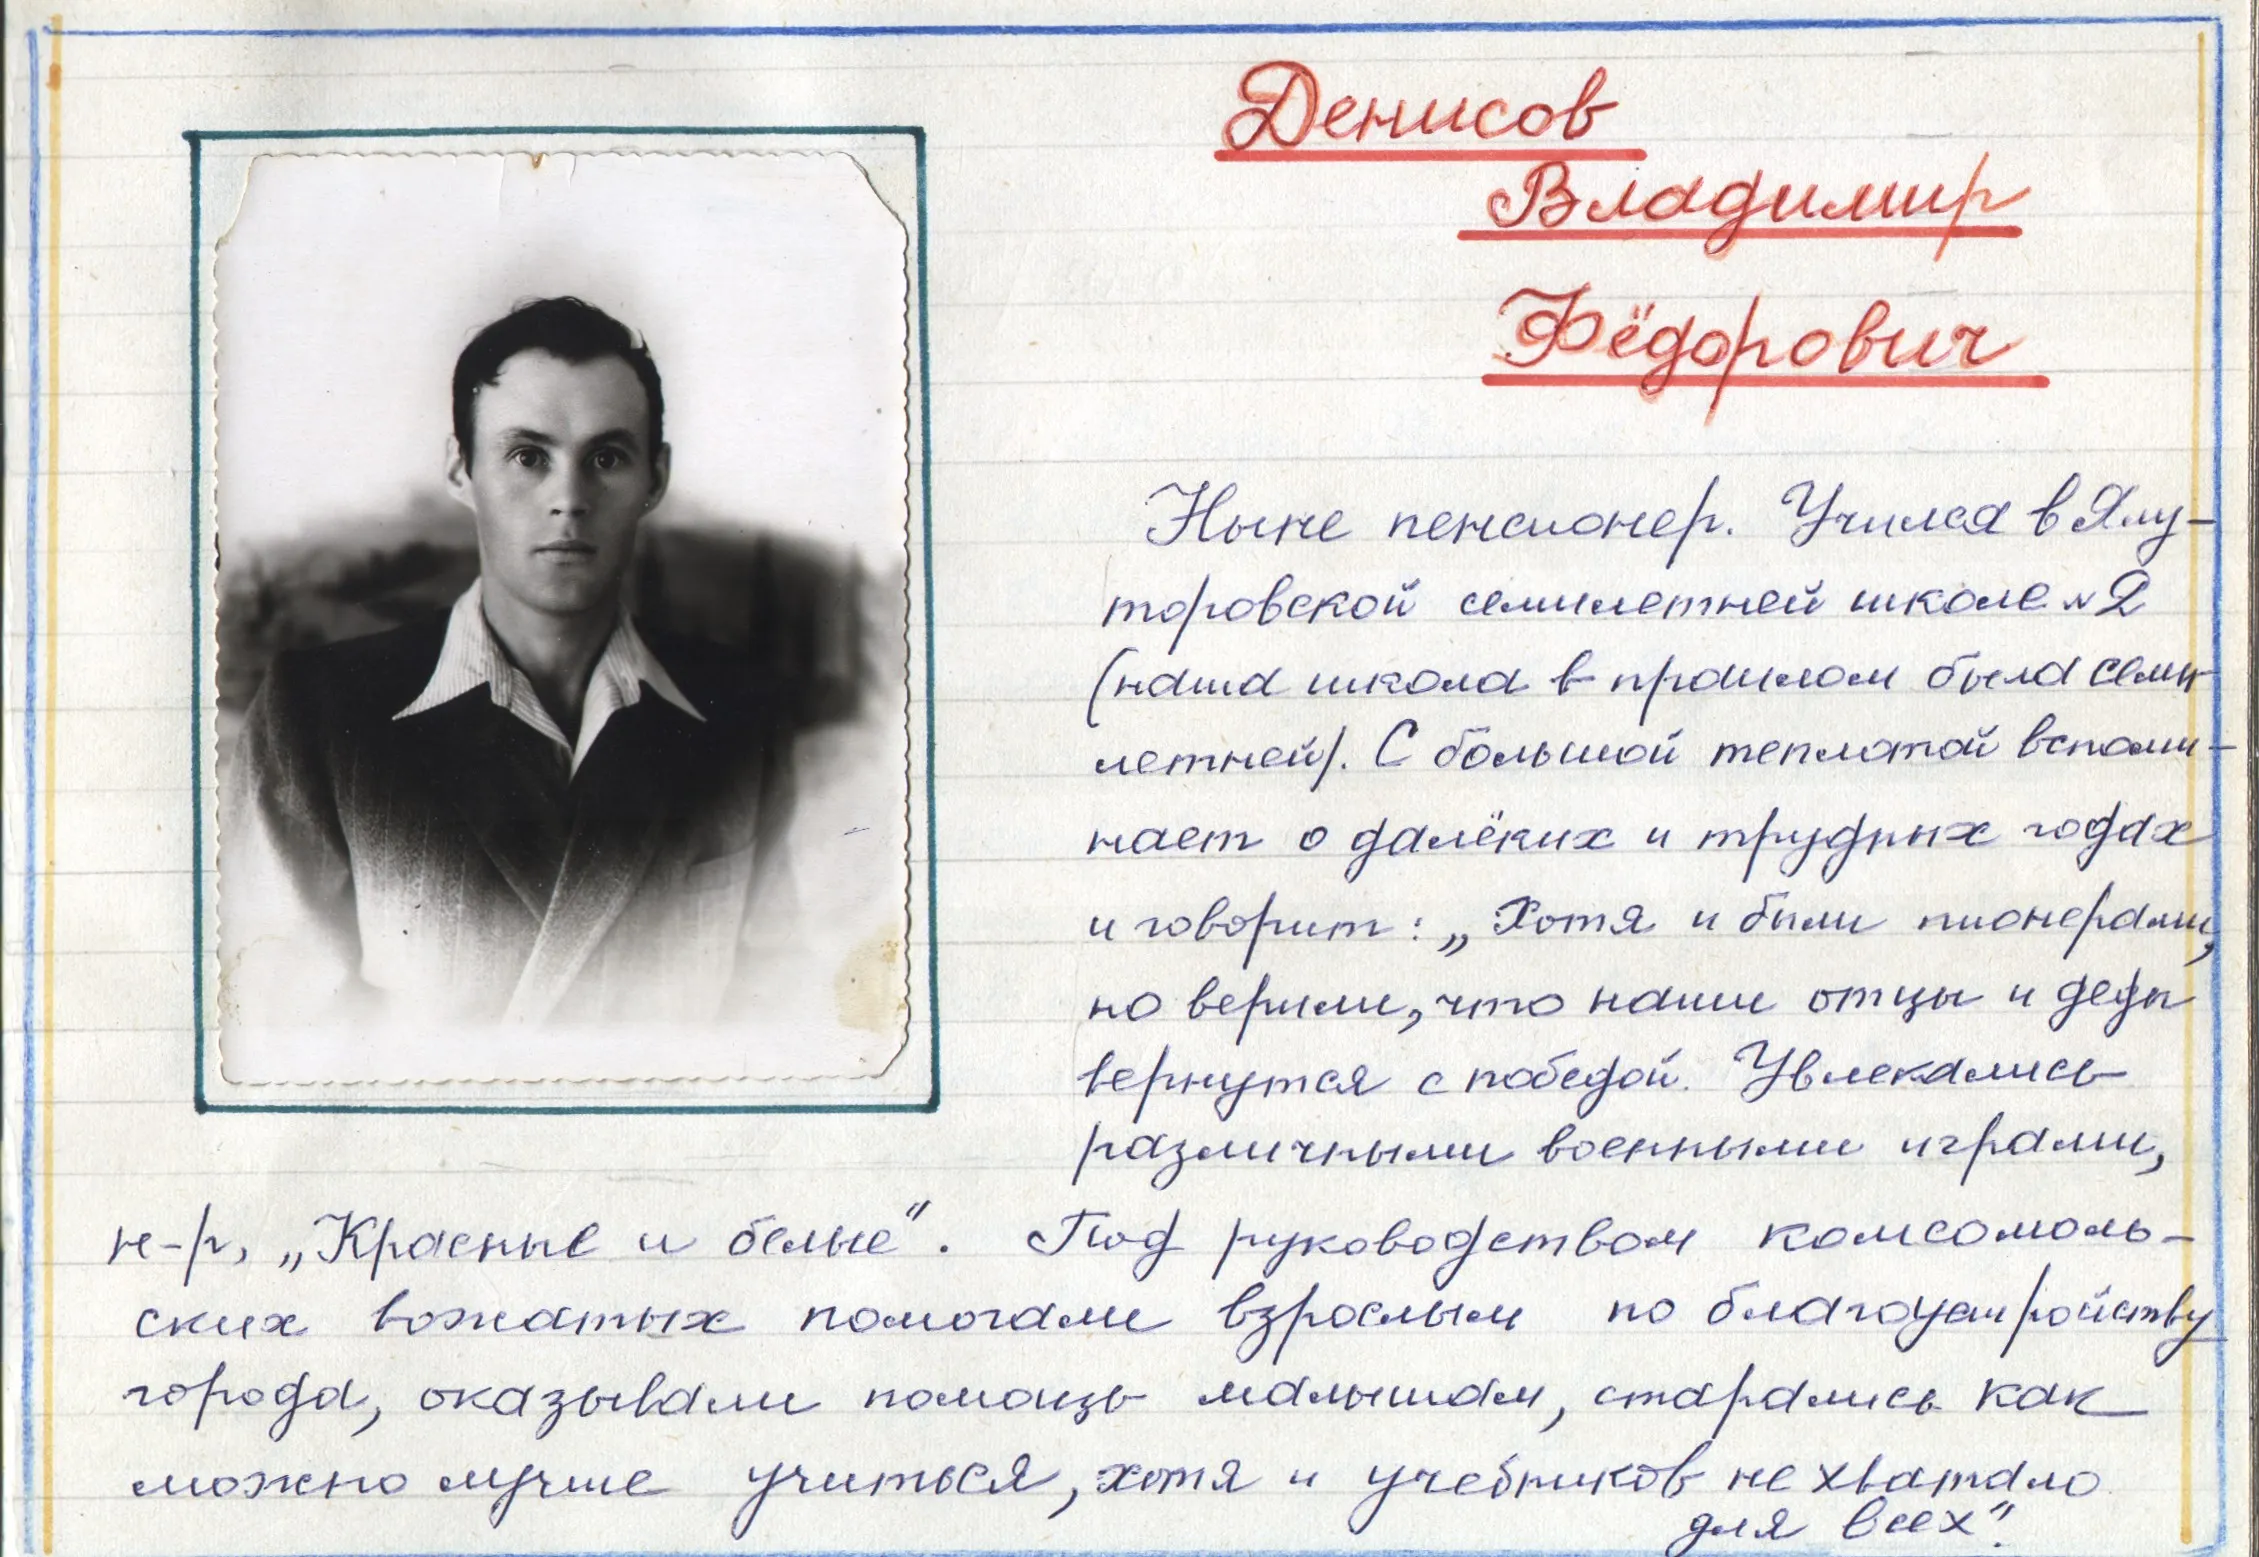 Денисов
Владимир
Фёдорович
Ныне пенсионер. Учился в Ялу-
торовской семилетней школе №2
(наша школа в прошлом была семи-
летней). С большой теплотой вспоми-
нает о далёких и трудных годах
и говорит: „Хотя и были пионерами,
но верили, что наши отцы и деды
вернутся с победой. Увлекались
различными военными играми,
н-р, „Красные и белые". Под руководством комсомоль-
ских вожатых помогали взрослым по благоустройству
города, оказывали помощь малышам, старались как
можно лучше учиться, хотя и учебников не хватало
для всех".